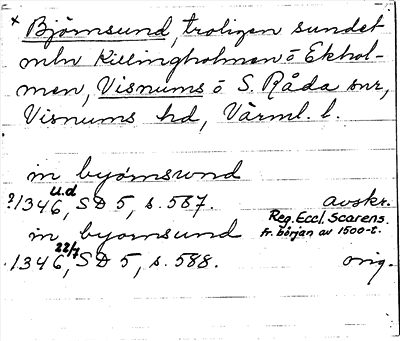 × Björnsund, troligen sundet
mln Killingholmen o Ekhol-
men, Visnums o S. Råda snr,
Visnums hd, Värml. l.
in byornswnd
?1346 u.d, SD 5, s. 567. avskr.
Reg. Eccl. Scarens.
fr. början av 1500-t.
in byornsund
.1346 22/7, SD 5, s. 588. orig.